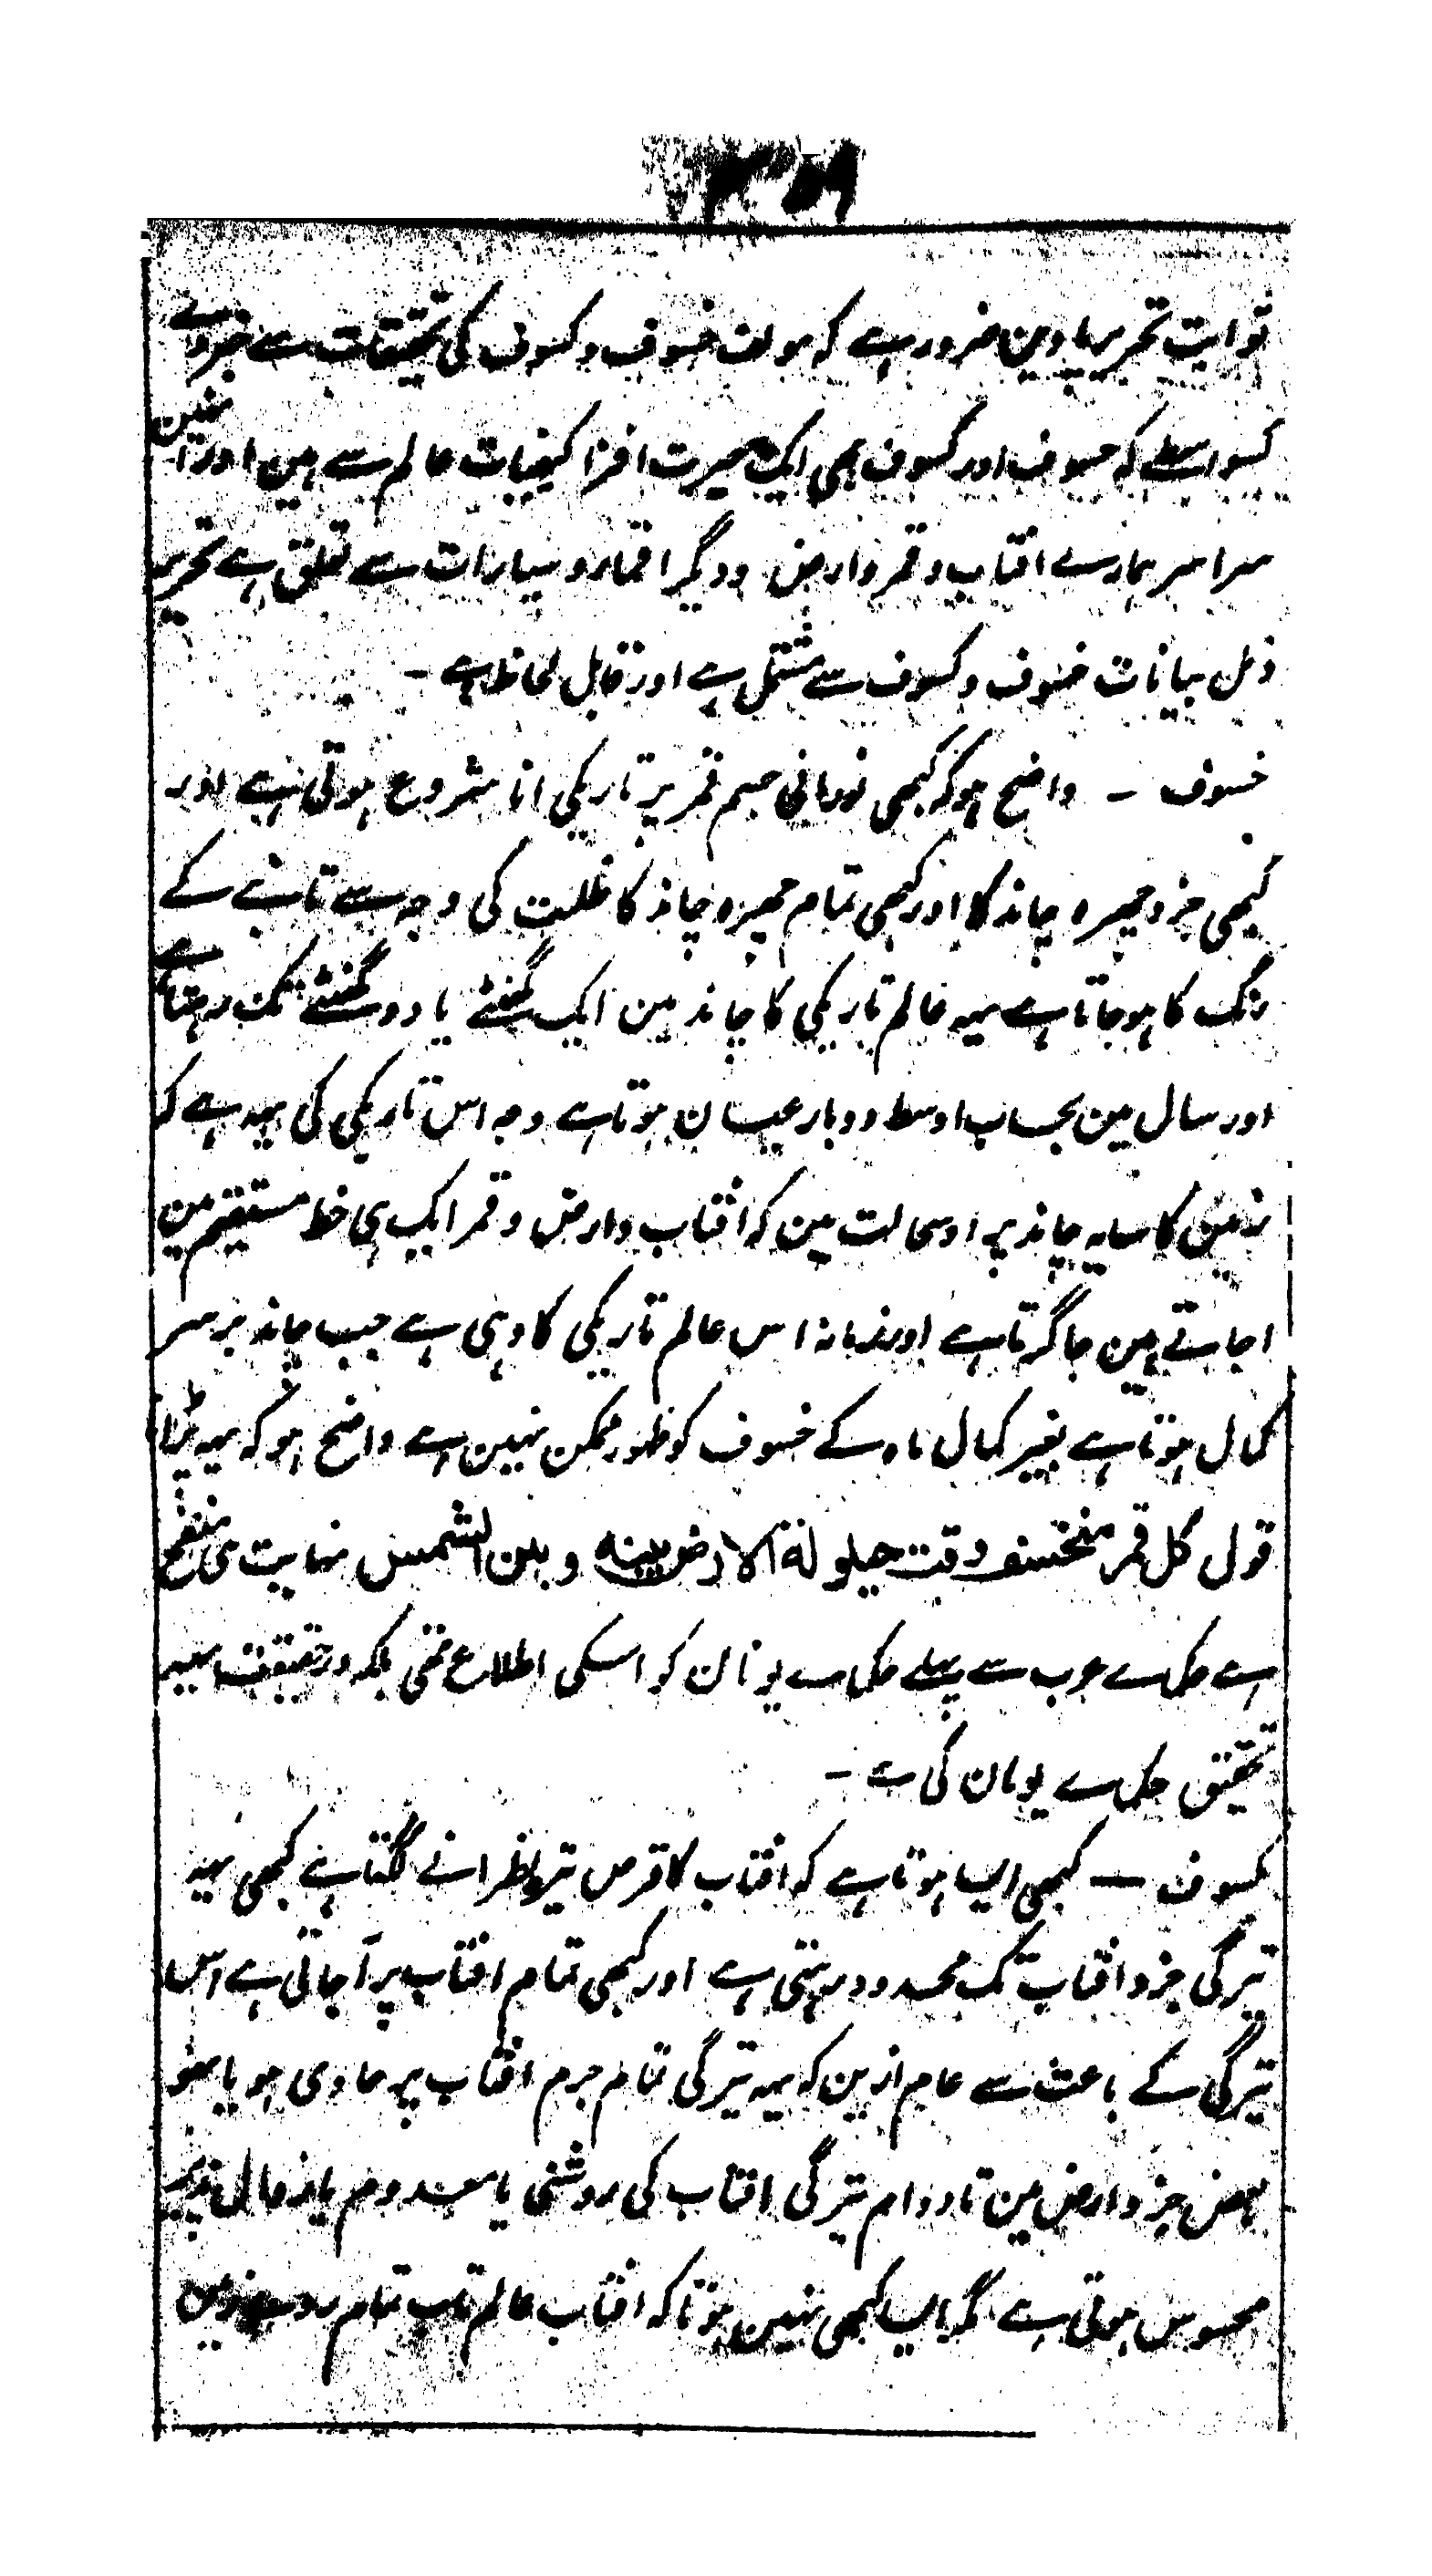 توابت تحریر مادین ضرور ہے کہ مولف خسوف و کسوف کی تحقیقات سے خبر دے
کسواسطے کہ خسوف اور کسوف بھی ایک حیرت افزا کیفیات عالم سے ہین اور انھین
سراسر ہمارے افتاب و قمر وارض ودیگر اقمار و سیارات سے تعلق ہے تحریر
ذیل بیانات خسوف و کسوف سے مشتمل ہے اور قابل لحاظ ہے ۔
خسوف ۔ واضح ہو کہ کبھی نورانی جسم قمر پر تاریکی انا شروع ہوتی ہے اور
کبھی جزو چہرہ چاند کا اور کبھی تمام چہرہ چاند کا ظلمت کی وجہ سے تانبے کے
رنگ کا ہو جاتا ہے یہہ عالم تاریکی کا چاند مین ایک گھنٹے یا دو گھنٹے تک رہتا ہے
اور سال مین بحساب اوسط دوبار عیان ہوتا ہے وجہ اس تاریکی کی یہہ ہے کہ
زمین کا سایہ چاند پر اوسحالت مین کہ افتاب وارض و قمر ایک ہی خط مستقیم مین
اجاتے ہین جا گرتا ہے اور زمانہ اس عالم تاریکی کا وہی ہے جب چاند بر سر
کمال ہوتا ہے بغیر کمال ماہ کے خسوف کو ظہور ممکن نہین ہے واضح ہو کہ یہہ پڑانا
قول کل قمر منخسف وقت حیلولة الارض بینہ و بین الشمس نہایت ہی منقح
ہے حکماے عرب سے پہلے حکماے یونان کو اسکی اطلاع تھی بلکہ درحقیقت یہہ
تحقیق حکماے یونان کی ہے ۔
کسوف — کبھی ایسا ہوتا ہے کہ افتاب کا قرص تیرہ نظر انے لگتا ہے کبھی یہہ
تیرگی جزو افتاب تک محدود رہتی ہے اور کبھی تمام افتاب پر آجاتی ہے اس
تیرگی کے باعث سے عام ازین کہ یہہ تیرگی تمام جرم افتاب پر حاوی ہو یا نہو
بعض جزو ارض مین تا دوام تیرگی افتاب کی روشنی یا معدوم یا زوال پذیر
محسوس ہوتی ہے مگر ایسا کبھی نہین ہوتا کہ افتاب عالم تاب تمام روے زمین